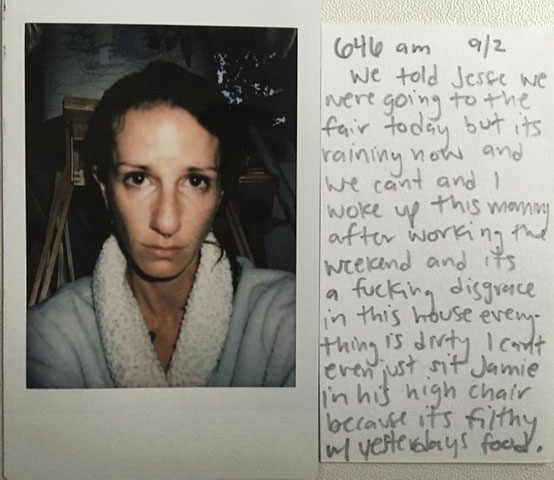 646 am 9/2
We told Jesse we
were going to the
fair today but its
raining now and
we cant and I
woke up this morning
after working the
weekend and its
a fucking disgrace
in this house every-
thing is dirty I can't
even just sit Jamie
in his high chair
because its filthy
w/ yesterdays food.